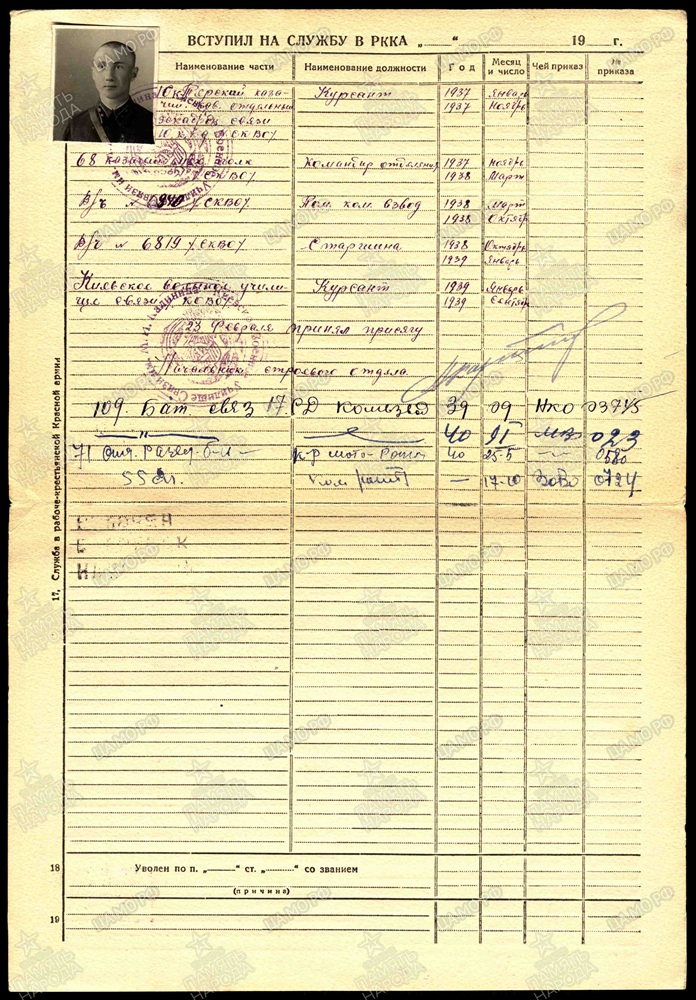 ВСТУПИЛ НА СЛУЖБУ В РККА „——“ 19 г.
Наименование части Наименование должности Год Месяц и число Чей приказ № приказа
10 к Терской каза- Курсант 1937 Январь
чий кав. отдельный 1937 Ноябрь
связи
СКВО/
68 казачий полк Командир отделения 1937 Ноябрь
/СКВО/ 1938 Март
В/ч № 940 /СКВО/ Пом. ком. взвод 1938 Март
1938 Октябр
В/ч № 6819 /СКВО/ Старшина 1938 Октябрь
1939 Январь
Киевское военное учили- Курсант 1939 Январь
ще связи КОВО 1939 Сентяб
23 Февраля принял присягу
Начальник строевого отдела
109. Бат. связ 17 СД 39 09 НКО 03745
—"— 40 023
71 Отд. Развед. б-н — к-р мото-Роты 40 25-5 —"— 0580
55 сд. Ком роты — 17-10 ЗОВО 0724
17. Служба в рабоче-крестьянской Красной армии
18 Уволен по п. „——“ ст. „——“ со званием
(причина)
19
ПАМЯТЬ НАРОДА
ЦАМО.РФ